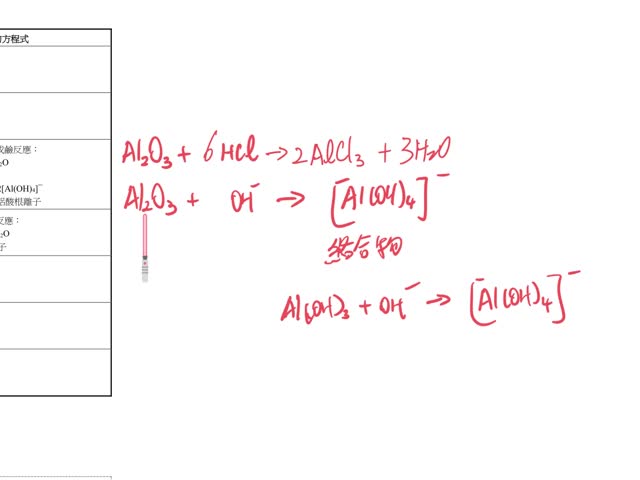 的方程式
或鹼反應：
₂O
2[Al(OH)₄]⁻
鋁酸根離子
反應：
₂O
子
Al₂O₃ + 6HCl → 2AlCl₃ + 3H₂O
Al₂O₃ + OH⁻ → [Al(OH)₄]⁻
絡合物
Al(OH)₃ + OH⁻ → [Al(OH)₄]⁻